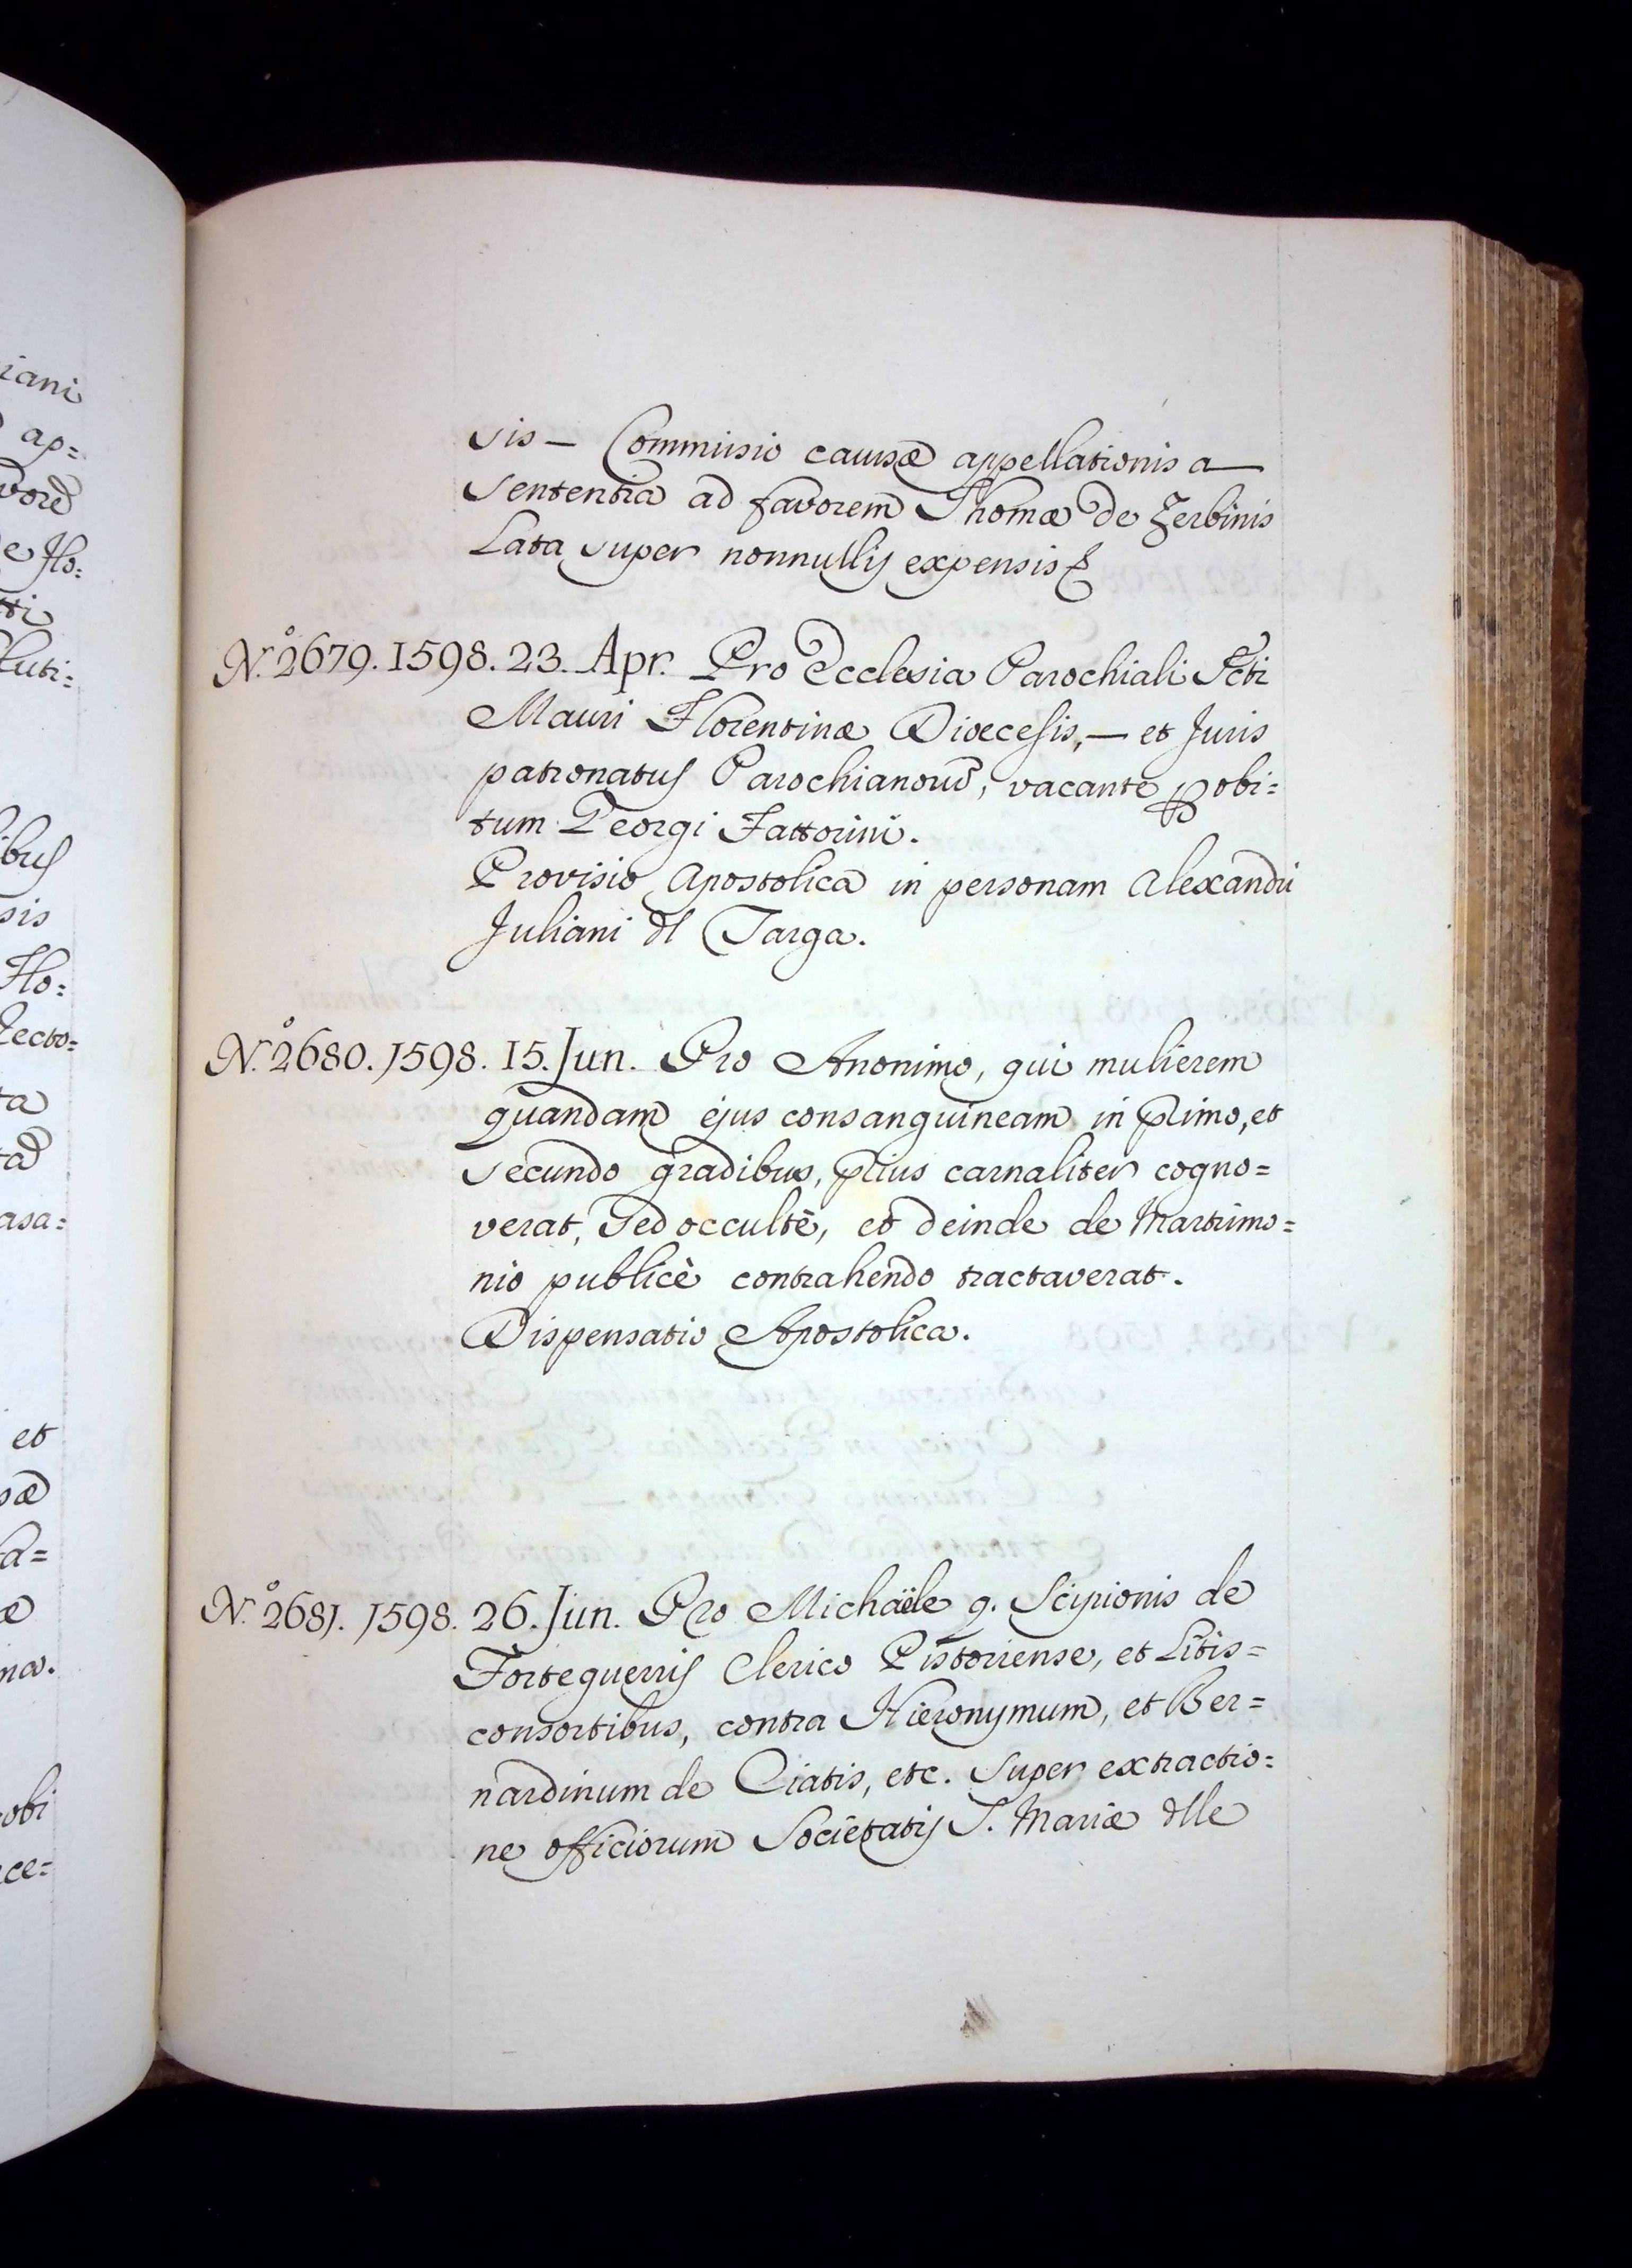 iani
ap=
vore
e Flo:
tti
luti=
ibus
sis
Flo:
Recto=
ta
ta
asa=
et
sæ
la=
æ
na.
obi
ce=
sis — Commissio causæ appellationis a —
Sententia ad favorem Thomæ de Zerbinis
Lata super nonnullis expensis &
N.º 2679. 1598. 23. Apr. Pro Ecclesia Parochiali Scti
Mauri Florentinæ Dioecesis, — et Juris
patronatus Parochianorũ, vacante p obi=
tum Georgi Fattorini.
Provisio Apostolica in personam Alexandri
Juliani dl Targa.
N.º 2680. 1598. 15. Jun. Pro Anonimo, qui mulierem
quandam ejus consanguineam in primo, et
secundo gradibus, prius carnaliter cogno=
verat, sed occultè, et deinde de Martrimo=
nio publicè contrahendo tractaverat.
Dispensatio Apostolica.
N.º 2681. 1598. 26. Jun. Pro Michäele q. Scipionis de
Forteguerris Clerico Pistoriense, et Litis=
consortibus, contra Hieronymum, et Ber=
nardinum de Ciatis, etc. super extractio=
ne officiorum Societatis S. Mariæ dlle